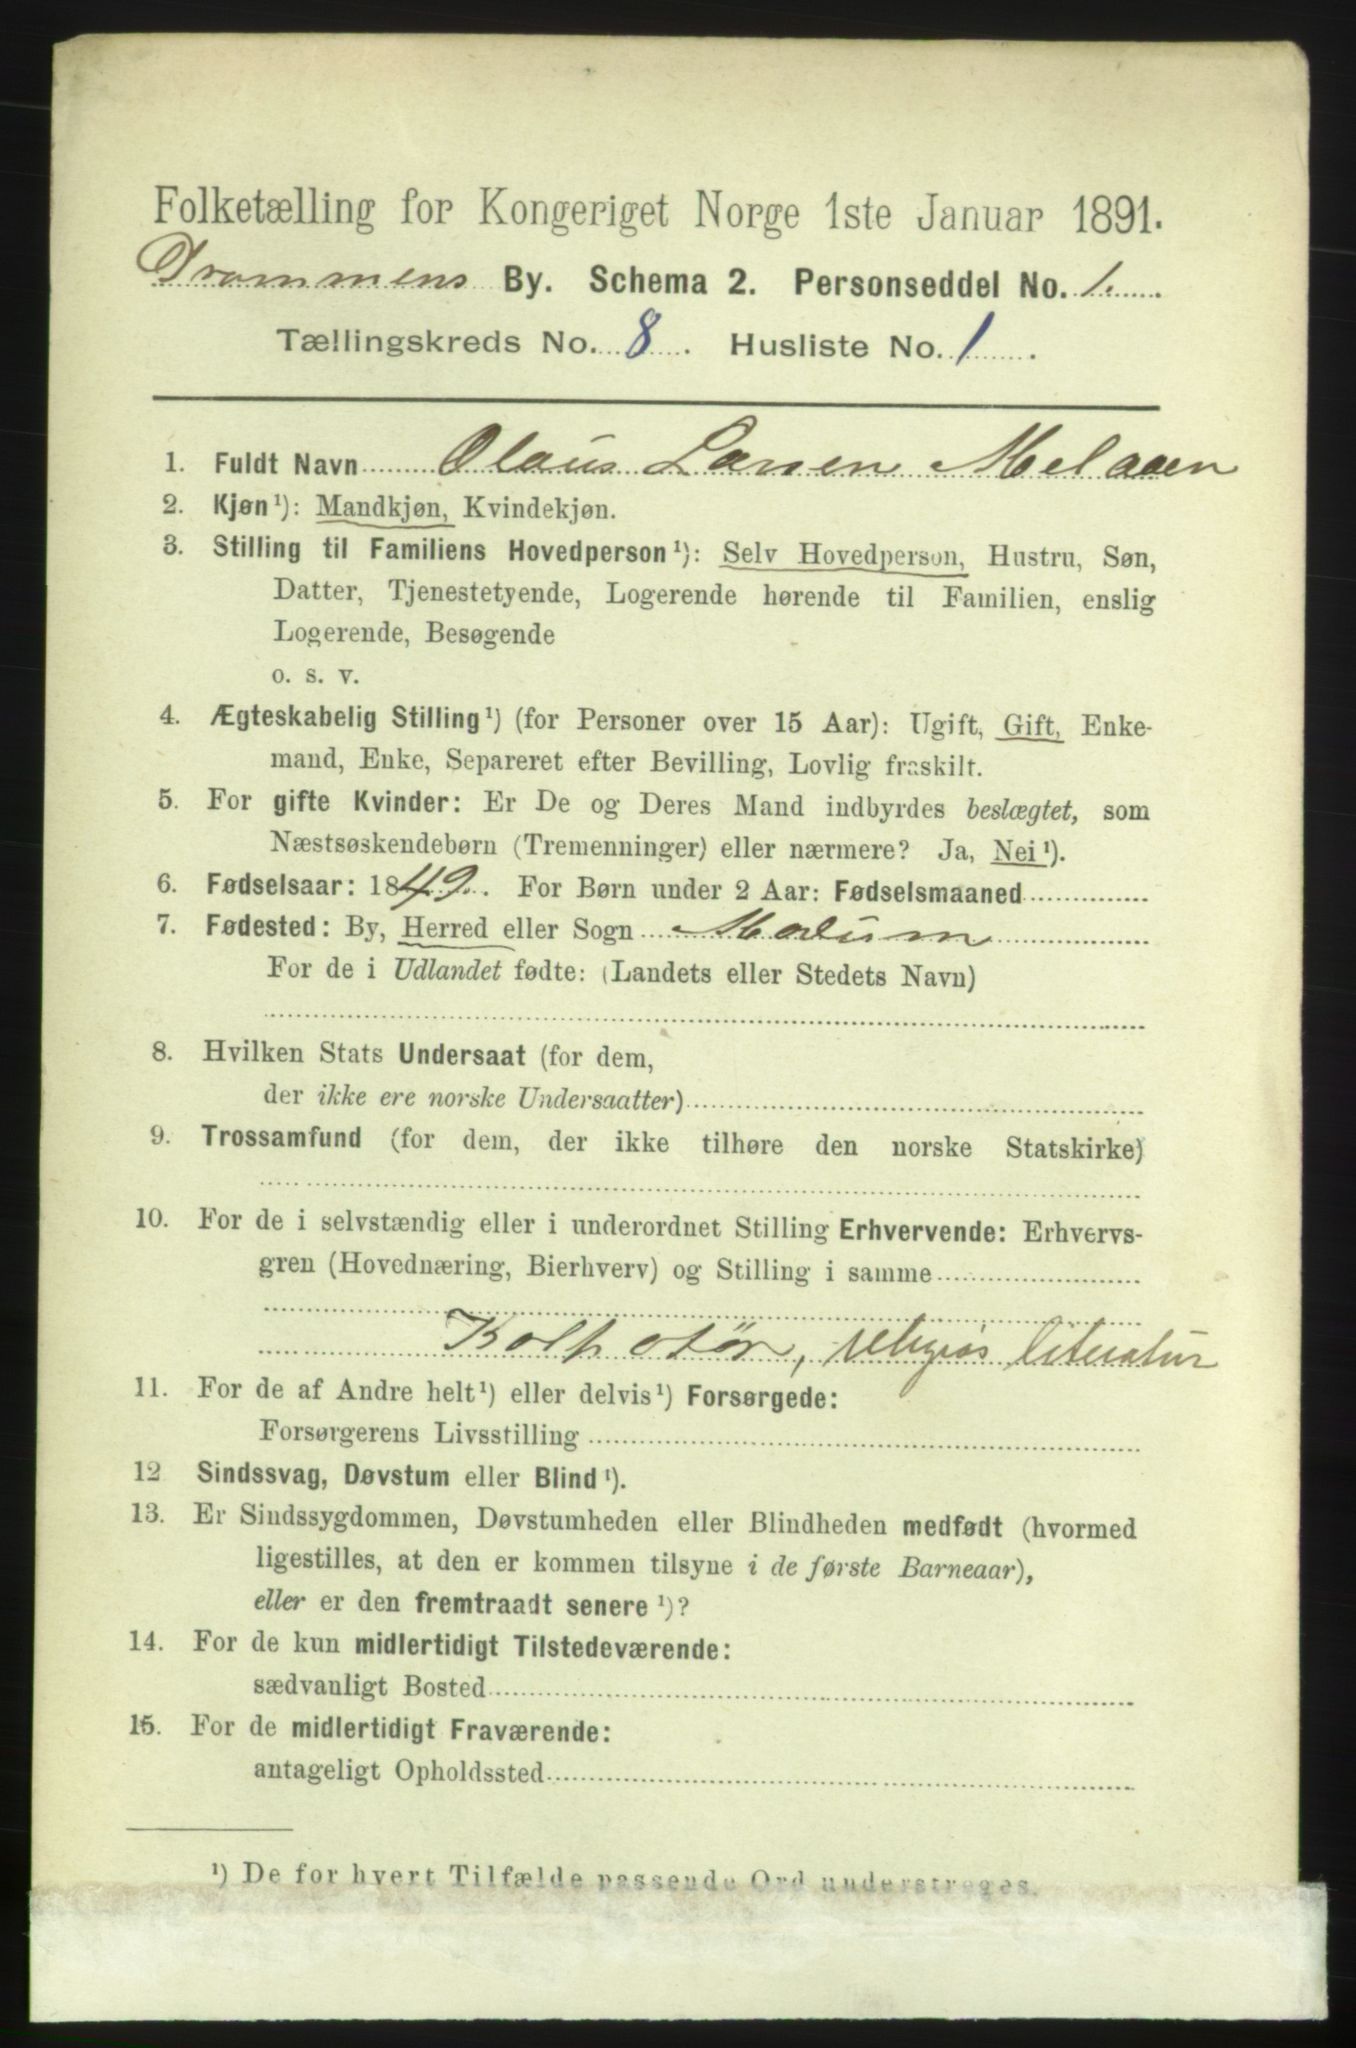 Folketælling for Kongeriget Norge 1ste Januar 1891.
Drammens By. Schema 2. Personseddel No. 1.
Tællingskreds No. 8. Husliste No. 1.
1. Fuldt Navn Olaus Larsen Melaaen
2. Kjøn¹): Mandkjøn, Kvindekjøn.
3. Stilling til Familiens Hovedperson¹): Selv Hovedperson, Hustru, Søn,
Datter, Tjenestetyende, Logerende hørende til Familien, enslig
Logerende, Besøgende
o. s. v.
4. Ægteskabelig Stilling¹) (for Personer over 15 Aar): Ugift, Gift, Enke-
mand, Enke, Separeret efter Bevilling, Lovlig fraskilt.
5. For gifte Kvinder: Er De og Deres Mand indbyrdes beslægtet, som
Næstsøskendebørn (Tremenninger) eller nærmere? Ja, Nei¹).
6. Fødselsaar: 1849. For Børn under 2 Aar: Fødselsmaaned
7. Fødested: By, Herred eller Sogn Modum
For de i Udlandet fødte: (Landets eller Stedets Navn)
8. Hvilken Stats Undersaat (for dem,
der ikke ere norske Undersaatter)
9. Trossamfund (for dem, der ikke tilhøre den norske Statskirke)
10. For de i selvstændig eller i underordnet Stilling Erhvervende: Erhvervs-
gren (Hovednæring, Bierhverv) og Stilling i samme
Kolportør, religiøs literatur
11. For de af Andre helt¹) eller delvis¹) Forsørgede:
Forsørgerens Livsstilling
12 Sindssvag, Døvstum eller Blind¹).
13. Er Sindssygdommen, Døvstumheden eller Blindheden medfødt (hvormed
ligestilles, at den er kommen tilsyne i de første Barneaar),
eller er den fremtraadt senere¹)?
14. For de kun midlertidigt Tilstedeværende:
sædvanligt Bosted
15. For de midlertidigt Fraværende:
antageligt Opholdssted
¹) De for hvert Tilfælde passende Ord understreges.